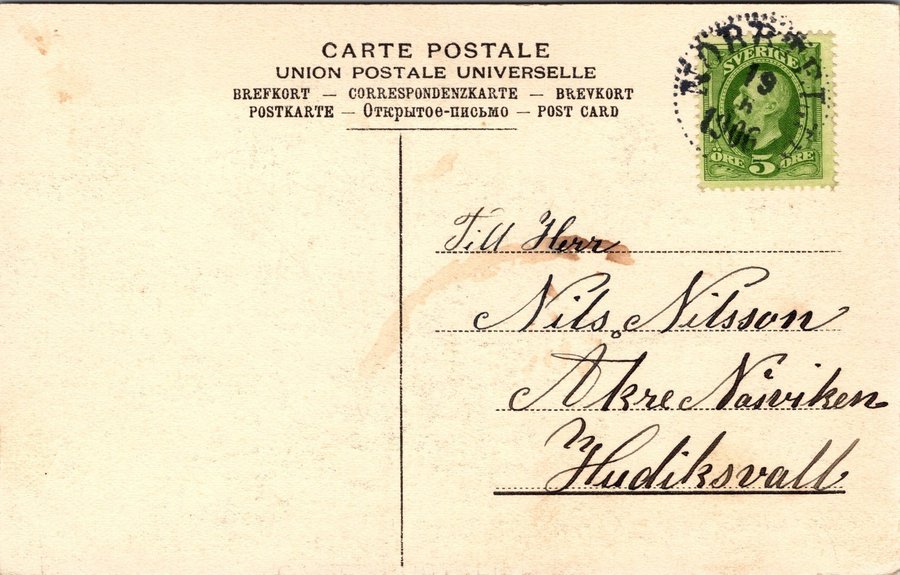 CARTE POSTALE
UNION POSTALE UNIVERSELLE
BREFKORT — CORRESPONDENZKARTE — BREVKORT
POSTKARTE — Открытое-письмо — POST CARD
SVERIGE
19
5
1906
ÖRE 5 ÖRE
Till Herr
Nils Nilsson
Åkre Näsviken
Hudiksvall